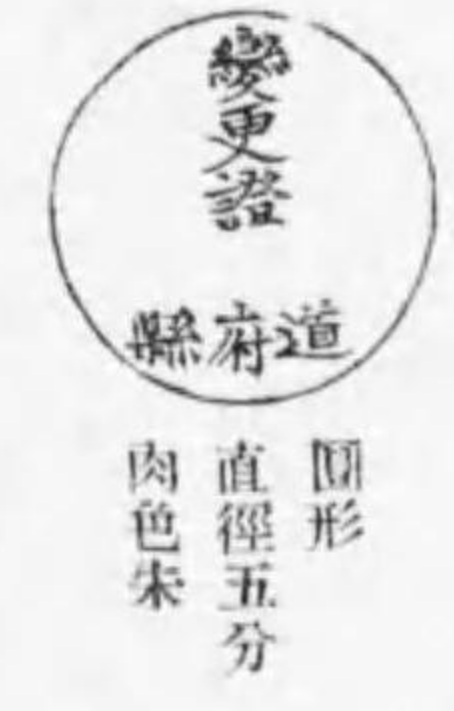 變更證
道府縣
圓形
直徑五分
肉色朱